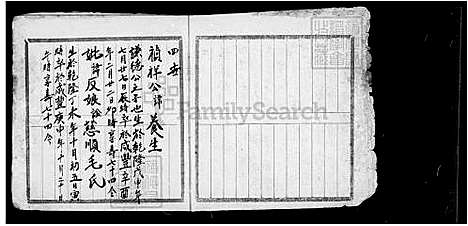 四世
禎祥公諱養生
謙德公之子也生於乾隆戊申年
七月廿七日辰時卒於咸豐辛酉
年二月廿二日卯時享壽七十四令
妣諱反娘諡慈順毛氏
生於乾隆丁未年十月初五日寅
時卒於咸豐庚申年十月二十日
午時享壽七十四令
FamilySearch